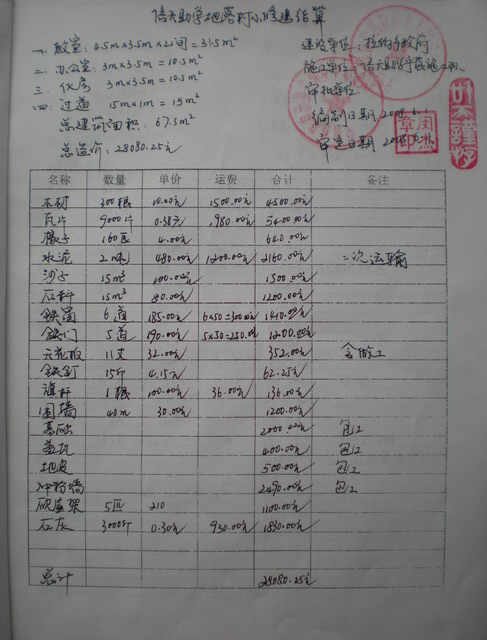 倍天助学地营村小修建结算
一、教室: 4.5m×3.5m×2间=31.5m²
二、办公室: 3m×3.5m=10.5m²
三、伙房 3m×3.5m=10.5m²
四: 过道 15m×1m=15m²
总建筑面积: 67.5m²
总造价: 28080.25元
建设单位:
施工单位:
审批单位
编制日期 2008.
审定日期 2008.
名称 数量 单价 运费 合计 备注
木材 300根 10.00元 1500.00元 4500.00元
瓦片 9000片 0.58元 980.00元 5400.00元
椽子 160匹 4.00元 640.00元
水泥 2吨 480.00元 1200.00元 2160.00元 二次运输
沙子 15m³ 100.00元 1500.00元
石料 15m³ 80.00元 1200.00元
铁窗 6道 185.00元 6×50=300.00元 1410.00元
铁门 5道 190.00元 5×50=250.00元 1200.00元
天花板 11丈 32.00元 352.00元 含做工
铁钉 15斤 4.15元 62.25元
旗杆 1根 100.00元 36.00元 136.00元
围墙 40m 30.00元 1200.00元
基础 2000.00元 包工
盖瓦 400.00元 包工
地皮 500.00元 包工
冲粉墙 2490.00元 包工
5匹 210 1100.00元
石灰 3000斤 0.30元 930.00元 1830.00元
总计 28080.25元